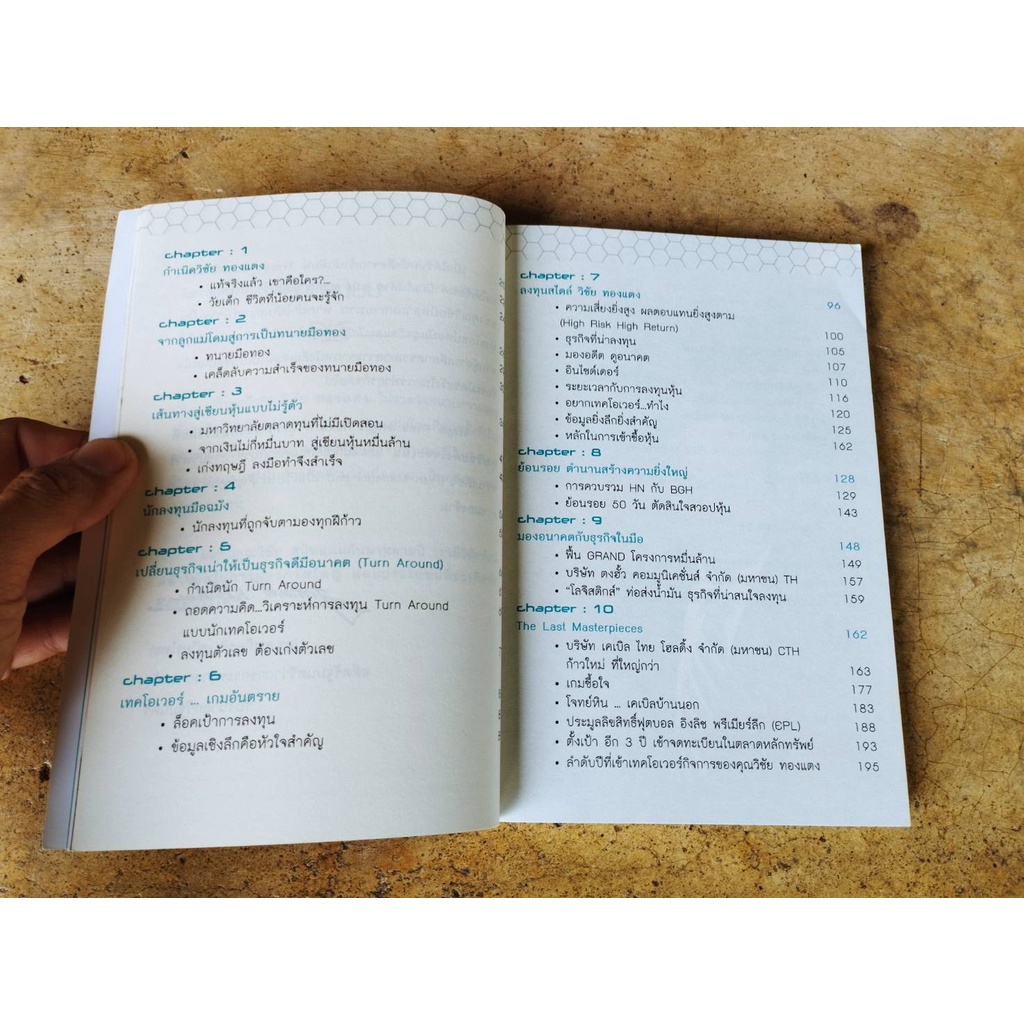 chapter : 1
กำเนิดวิชัย ทองแตง
• แท้จริงแล้ว เขาคือใคร?...
• วัยเด็ก ชีวิตที่น้อยคนจะรู้จัก
chapter : 2
จากลูกแม่โดมสู่การเป็นทนายมือทอง
• ทนายมือทอง
• เคล็ดลับความสำเร็จของทนายมือทอง
chapter : 3
เส้นทางสู่เซียนหุ้นแบบไม่รู้ตัว
• มหาวิทยาลัยตลาดทุนที่ไม่มีเปิดสอน
• จากเงินไม่กี่หมื่นบาท สู่เซียนหุ้นหมื่นล้าน
• เก่งทฤษฎี ลงมือทำจึงสำเร็จ
chapter : 4
นักลงทุนมือฉมัง
• นักลงทุนที่ถูกจับตามองทุกฝีก้าว
chapter : 5
เปลี่ยนธุรกิจเน่าให้เป็นธุรกิจดีมีอนาคต (Turn Around)
• กำเนิดนัก Turn Around
• ถอดความคิด...วิเคราะห์การลงทุน Turn Around
แบบนักเทคโอเวอร์
• ลงทุนตัวเลข ต้องเก่งตัวเลข
chapter : 6
เทคโอเวอร์ ... เกมอันตราย
• ล็อคเป้าการลงทุน
• ข้อมูลเชิงลึกคือหัวใจสำคัญ
chapter : 7
ลงทุนสไตล์ วิชัย ทองแตง 96
• ความเสี่ยงยิ่งสูง ผลตอบแทนยิ่งสูงตาม
(High Risk High Return) 100
• ธุรกิจที่น่าลงทุน 105
• มองอดีต ดูอนาคต 107
• อินไซด์เดอร์ 110
• ระยะเวลากับการลงทุนหุ้น 116
• อยากเทคโอเวอร์...ทำไง 120
• ข้อมูลยิ่งลึกยิ่งสำคัญ 125
• หลักในการเข้าซื้อหุ้น 162
chapter : 8
ย้อนรอย ตำนานสร้างความยิ่งใหญ่ 128
• การควบรวม HN กับ BGH 129
• ย้อนรอย 50 วัน ตัดสินใจสวอปหุ้น 143
chapter : 9
มองอนาคตกับธุรกิจในมือ 148
• ฟื้น GRAND โครงการหมื่นล้าน 149
• บริษัท ตงฮั้ว คอมมูนิเคชั่นส์ จำกัด (มหาชน) TH 157
• “โลจิสติกส์” ท่อส่งน้ำมัน ธุรกิจที่น่าสนใจลงทุน 159
chapter : 10
The Last Masterpieces 162
• บริษัท เคเบิล ไทย โฮลดิ้ง จำกัด (มหาชน) CTH
ก้าวใหม่ ที่ใหญ่กว่า 163
• เกมซื้อใจ 177
• โจทย์หิน ... เคเบิลบ้านนอก 183
• ประมูลลิขสิทธิ์ฟุตบอล อิงลิช พรีเมียร์ลีก (EPL) 188
• ตั้งเป้า อีก 3 ปี เข้าจดทะเบียนในตลาดหลักทรัพย์ 193
• ลำดับปีที่เข้าเทคโอเวอร์กิจการของคุณวิชัย ทองแตง 195